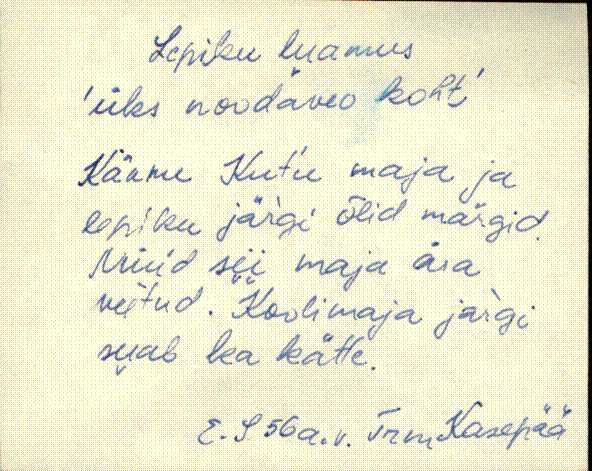 Lepiku luamus
'üks noodaveo koht'
Käanu Kut'u maja ja
lepiku jär̀gi õlid mär̀gid.
Nüüd sii maja ära
viitud. Koolimaja jär̀gi
suab ka kätte.
E. S 56 a. v. Trm, Kasepää